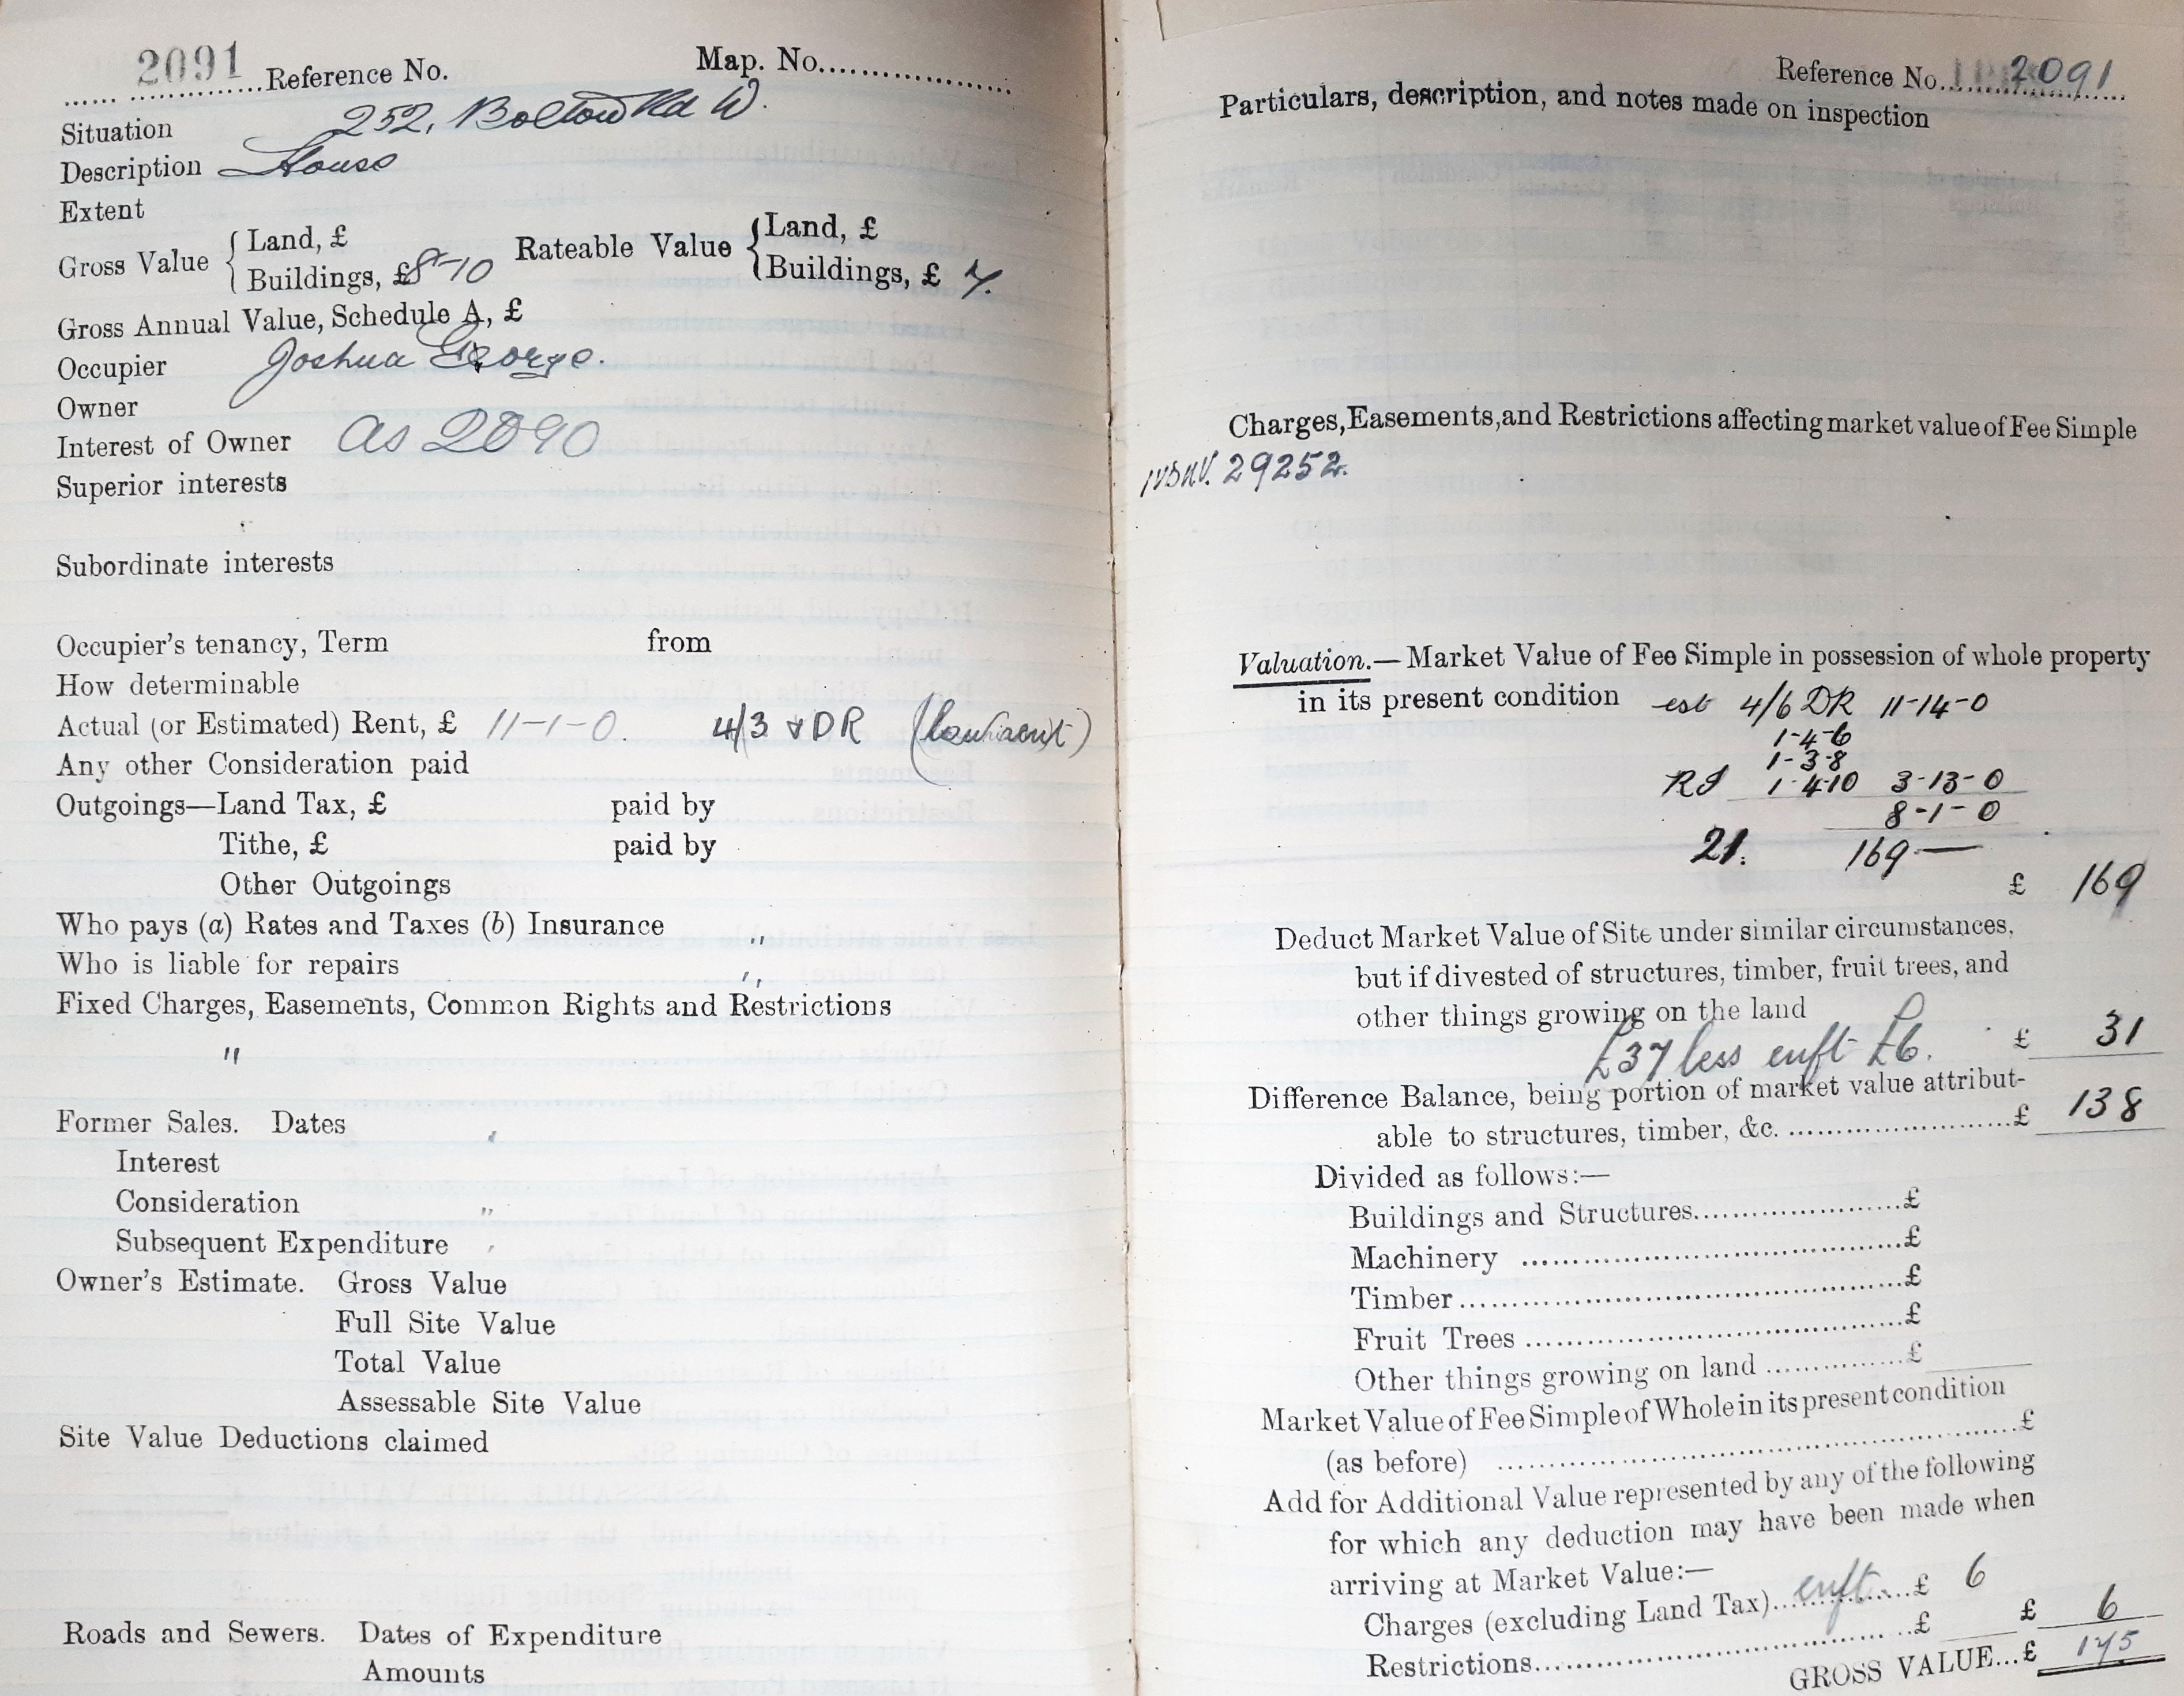 2091 Reference No. Map. No.
Situation 252, Bolton Rd W.
Description House
Extent
Gross Value { Land, £ Rateable Value { Land, £
Buildings, £ 8-10 Buildings, £ 7.
Gross Annual Value, Schedule A, £
Occupier Joshua George.
Owner
Interest of Owner as 2090
Superior interests
Subordinate interests
Occupier's tenancy, Term from
How determinable
Actual (or Estimated) Rent, £ 11-1-0. 4/3 & DR
Any other Consideration paid
Outgoings—Land Tax, £ paid by
Tithe, £ paid by
Other Outgoings
Who pays (a) Rates and Taxes (b) Insurance "
Who is liable for repairs "
Fixed Charges, Easements, Common Rights and Restrictions
"
Former Sales. Dates
Interest
Consideration "
Subsequent Expenditure
Owner's Estimate. Gross Value
Full Site Value
Total Value
Assessable Site Value
Site Value Deductions claimed
Roads and Sewers. Dates of Expenditure
Amounts
Reference No. 2091
Particulars, description, and notes made on inspection
Charges, Easements, and Restrictions affecting market value of Fee Simple
29252.
Valuation.—Market Value of Fee Simple in possession of whole property
in its present condition est 4/6 DR 11-14-0
1-4-6
1-3-8
RI 1-4-10 3-13-0
8-1-0
21. 169—
£ 169
Deduct Market Value of Site under similar circumstances,
but if divested of structures, timber, fruit trees, and
other things growing on the land
£37 less enft £6. £ 31
Difference Balance, being portion of market value attribut-
able to structures, timber, &c. £ 138
Divided as follows:—
Buildings and Structures £
Machinery £
Timber £
Fruit Trees £
Other things growing on land £
Market Value of Fee Simple of Whole in its present condition
(as before) £
Add for Additional Value represented by any of the following
for which any deduction may have been made when
arriving at Market Value:—
Charges (excluding Land Tax) enft. £ 6
Restrictions £ £ 6
GROSS VALUE... £ 175